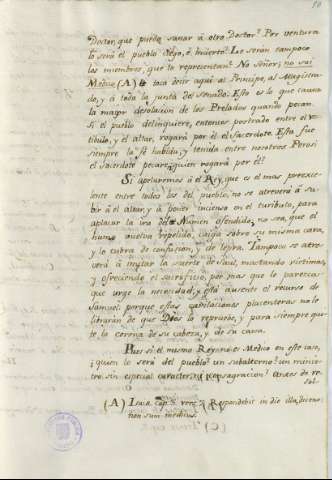 50
Doctor, que puede sanar á otro Doctor? Por ventura
lo será el pueblo ciego, é inerto? Lo serán tampoco
los miembros, que lo representan? No Señor; no soi
Medico (A) le toca decir aqui al Principe, al Magistra-
do, y á toda la junta del Senado. Esto es lo que causa
la mayor desolacion de los Prelados quando pecan.
Si el pueblo delinquiere, entonces postrado entre el ve-
tibulo, y el altar, rogará por él el Sacerdote. Esta fue
siempre la fé habida, y tenida entre nosotros. Pero si
el Sacerdote pecare, quien rogará por él?
Si apelaremos á el Rey, que es el mas preexce-
lente entre todos los del pueblo, no se atreverá á su-
bir á el altar, y á poner incienso en el turibulo, para
aplacar la ira del Numen ofendido, no sea, que el
humo vuelva repelido, caiga sobre su misma cara,
y le cubra de confusion, y de lepra. Tampoco se atre-
verá á imitar la suerte de Saul, mactando victimas,
y ofreciendo el sacrificio, por mas que le parezca
que urge la necesidad, y está ausente el recurso de
Samuel: porque estas cabilaciones placenteras no le
librarán de que Dios la repruebe, y para siempre qui-
te, la corona de su cabeza, y de su casa.
Pues si el mismo Rey no es Medico en este caso,
¿quien lo será del pueblo? un subalterno? un minis-
tro sin especial caracter, y consagracion? Antes de re-
sol-
(A) Isaiæ cap. 3. vers. 7. Respondebit in die illa, dicens:
non sum medicus.